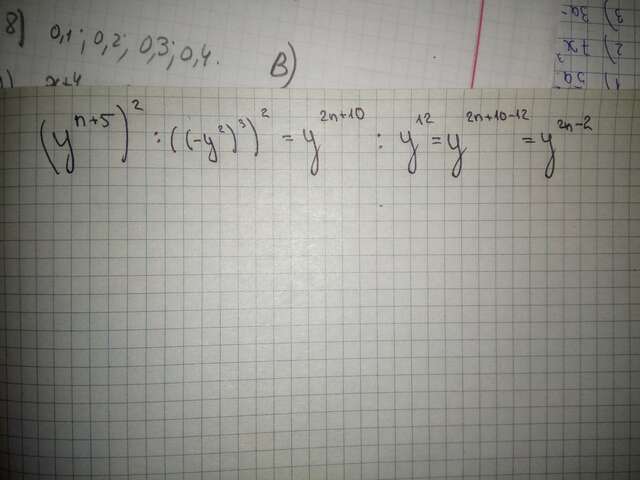 8) 0,1; 0,2; 0,3; 0,4. B)
x+4
(y^{n+5})^2 : ((-y^2)^3)^2 = y^{2n+10} : y^{12} = y^{2n+10-12} = y^{2n-2}
3) 3a
2) 7x
1) 5a^3